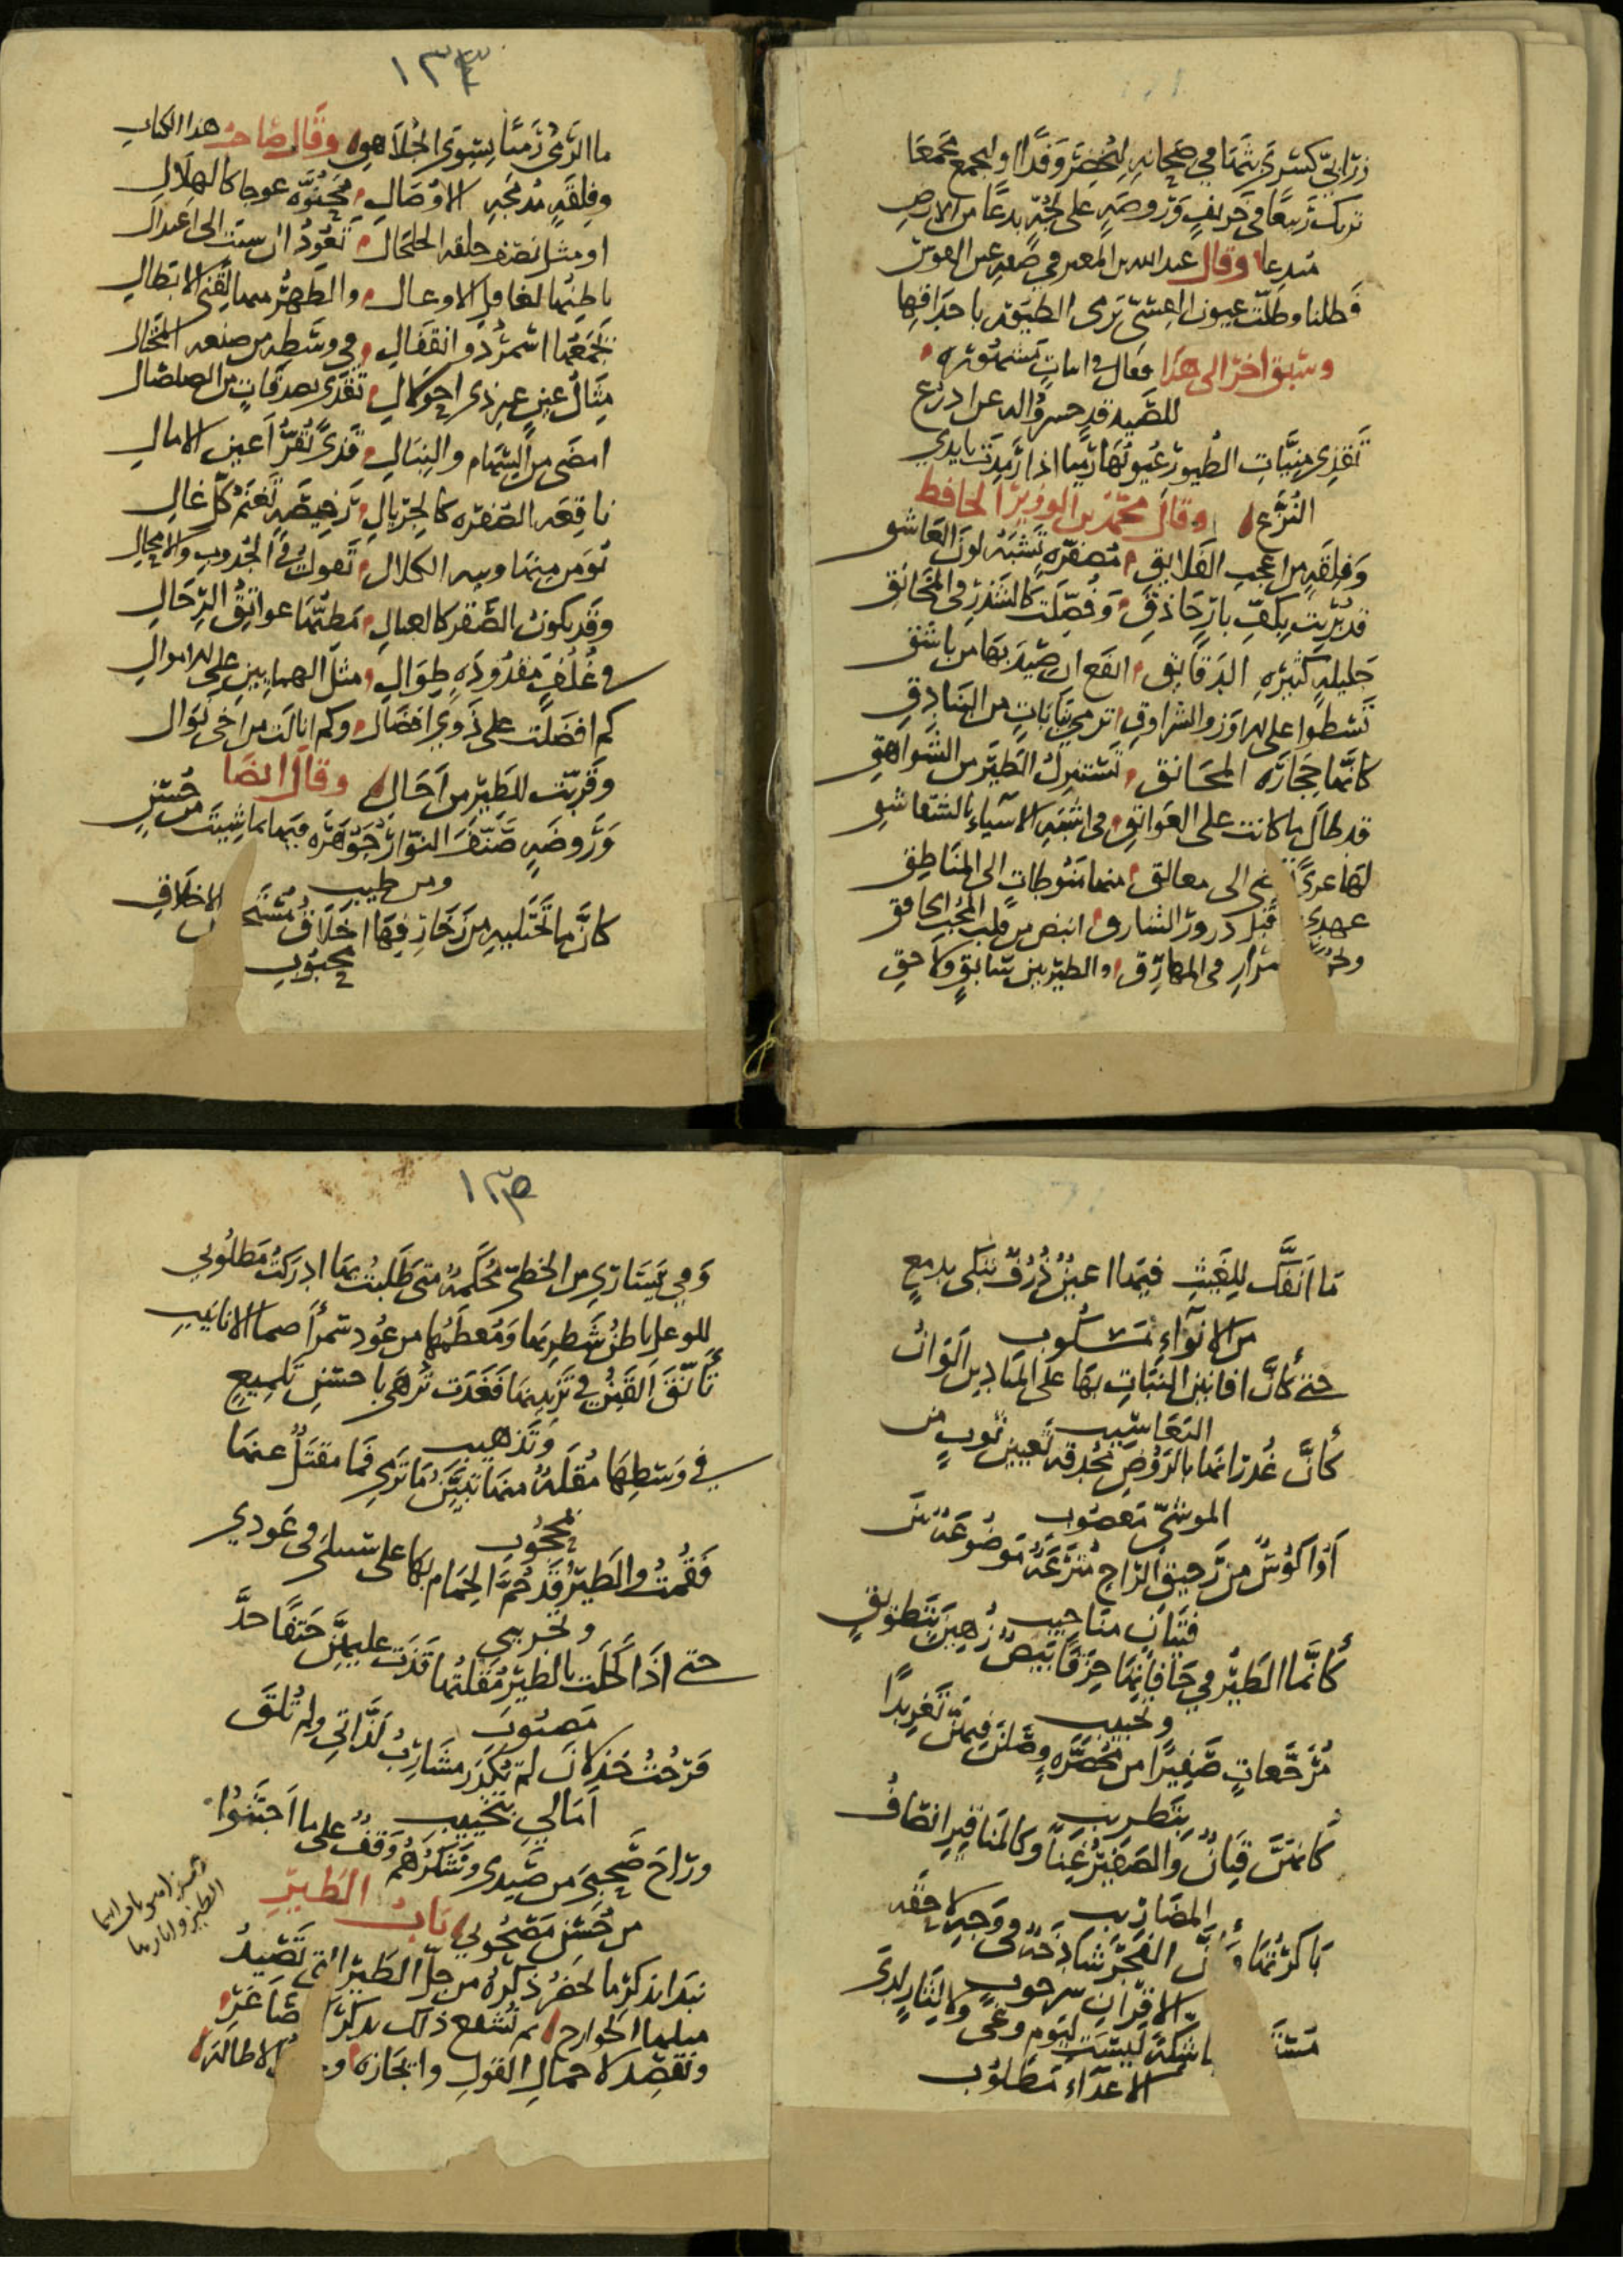 زرابيّ كسرى بثها في صحانه ليحضر وفدا او ليجمع مجمعا
تريك ربيعا في خريف وروضة على لجة بدعا من الارض
مبدعا وقال عبد الله بن المعتز في صفة عين القوس
فظلنا وظلت عيون العشي ترمى الطيور باحداقها
وسبق اخر الى هذا فقال في ابيات مشهورة
للصيد قد حسروا له عن اذرع
تقذي منيات الطيور عيونها رميا اذا رمدت بايدي
النزع وقال محمد بن الوزير الحافظ
وفلقة من اعجب الفلائق مصفرة تشبه لون العاشق
قد بريت بكف بار حاذق وفصلت كالشذر في المخانق
جليلة كثيرة الدقايق انفع ان صيد بها من باشق
تسطوا على الاوز والشرارق ترمي بنايات من البنادق
كانها حجارة المجانق تستنزل الطير من الشواهق
قد طال ما كانت على العواتق في اشبه الاشياء بالشقاشق
لها عرى الى معالق منها منوطات الى المناطق
عهدي قبل درور الشارق انبض من قلب المحب الخافق
مزار في المهارق والطير بين سابق ولاحق
١٣٤
ما الرمي رميا بسوى الجلاهق وقال صاحب هذا الكتاب
وفلقة مدمجة الاوصال محنوة عوجا كالهلال
او مثل نصف حلقة الخلخال تعود ان سيت الى اعتدال
باطنها لغافل الاوعال والظهر مما يقتني الابطال
يجمعها اسمر ذو انقفال في وسطه من صنعة المحتال
مثال عين غير ذي احولال تقذى بصدقات من الصلصال
امضى من السهام والنبال قذى تقر اعين الامال
ناقعة الصفرة كالجريال رخيصة تغنم كل غال
نومر منها وبه الكلال تعولك في الجدوب والامحال
وقد يكون الصقر كالعيال مطيها عواتق الرجال
في غلف مقدودة طوال مثل الهمايين على الاموال
كم افضلت على ذوي افضال وكم انالت من اخى نوال
وقربت للطير من اجال وقال ايضا
وروضة صنف النوار جوهره فيها بما شيت من حسن
ومن طيب
كانما تجتليه من زخارفها اخلاق مستحسن الاخلاق
محبوب
ما انفك للغيث فيها اعين ذرف تبكى بدمع
من الانوآء مسكوب
حتى كأن افانين النبات بها على الميادين الوان
التعاشيب
كأن غدرانها بالروض محدقة تعيين ثوب من
الموشي معصوب
او اكؤس من رحيق الراح مترعة موضوعة بين
فتيان مناجيب
كأنما الطير في حافاتها حزقا بيض زهين بتطويق
وتحبيب
مرجعات صفيرا من محصرة وصلن فيهن تغريدا
بتطريب
كانهن قيان والصفير غنا وكالمناقير اطراف
المضاريب
باكرتها وكأن الفجر شادخة في وجه لاحقة
الاقراب سرحوب
باشكة ليست ليوم وغى ولا لثار لدى
الاعدآء مطلوب
١٣٥
وفي يساري من الخطي محكمة متى طلبت بها ادركت مطلوبي
للوعل باطن شطريها ومعظمها من عود سمرآ صما الانابيب
تأنق القين في تزيينها فغدت تزهى باحسن تلميع
وتذهيب
في وسطها مقلة منها تبين ما ترمي فما مقتل عنها
بمحجوب
فقمت والطير قد حم الحمام بها على سبيلى في عودي
وتجريبي
حتى اذا كحلت بالطير مقلتها قذت عليهن حتفا حد
مصبوب
فرحت جذلان لم تكدر مشارب لذاتي ولم تلق
آمالي بتخييب
وراح صحبى من صيدى وشكرهم وقف على ما اجتنوا
من حسن مصحوبي باب الطير
نبدا بذكر ما يحضر ذكره من جل الطير التي تصيد
مثلها الجوارح ثم نشفع ذلك بذكر صاغر
ونقصد لاجمال القول وايجازه الاطالة
الطير واثارها